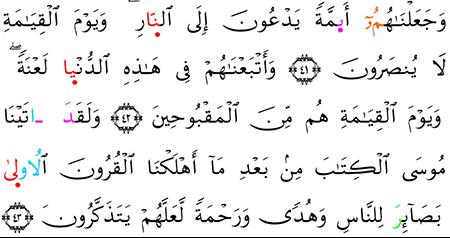 وَجَعَلْنَٰهُمُۥٓ أَيِمَّةٗ يَدْعُونَ إِلَى ٱلنَّارِۖ وَيَوْمَ ٱلْقِيَٰمَةِ
لَا يُنصَرُونَ ﴿٤١﴾ وَأَتْبَعْنَٰهُمْ فِى هَٰذِهِ ٱلدُّنْيَا لَعْنَةٗۖ
وَيَوْمَ ٱلْقِيَٰمَةِ هُم مِّنَ ٱلْمَقْبُوحِينَ ﴿٤٢﴾ وَلَقَدَ ـاتَيْنَا
مُوسَى ٱلْكِتَٰبَ مِنۢ بَعْدِ مَآ أَهْلَكْنَا ٱلْقُرُونَ ٱلُاولَىٰ
بَصَآئِرَ لِلنَّاسِ وَهُدٗى وَرَحْمَةٗ لَّعَلَّهُمْ يَتَذَكَّرُونَ ﴿٤٣﴾